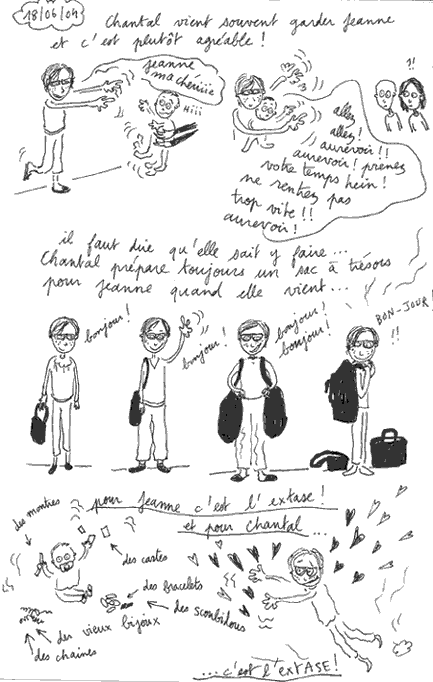 18/06/09
Chantal vient souvent garder Jeanne
et c'est plutôt agréable !
Jeanne
ma chériiie
Hiii
!!
allez
allez !
aurevoir !!
aurevoir ! prenez
votre temps hein !
ne rentrez pas
trop vite !!
aurevoir !
il faut dire qu'elle sait y faire...
Chantal prépare toujours un sac à trésors
pour Jeanne quand elle vient...
bonjour !
bonjour !
bonjour !
bonjour !
BON-JOUR !
!!
pour Jeanne c'est l'extase !
et pour chantal...
des montres
des cartes
des bracelets
des scoubidous
des vieux bijoux
des chaînes
...c'est l'EXTASE !